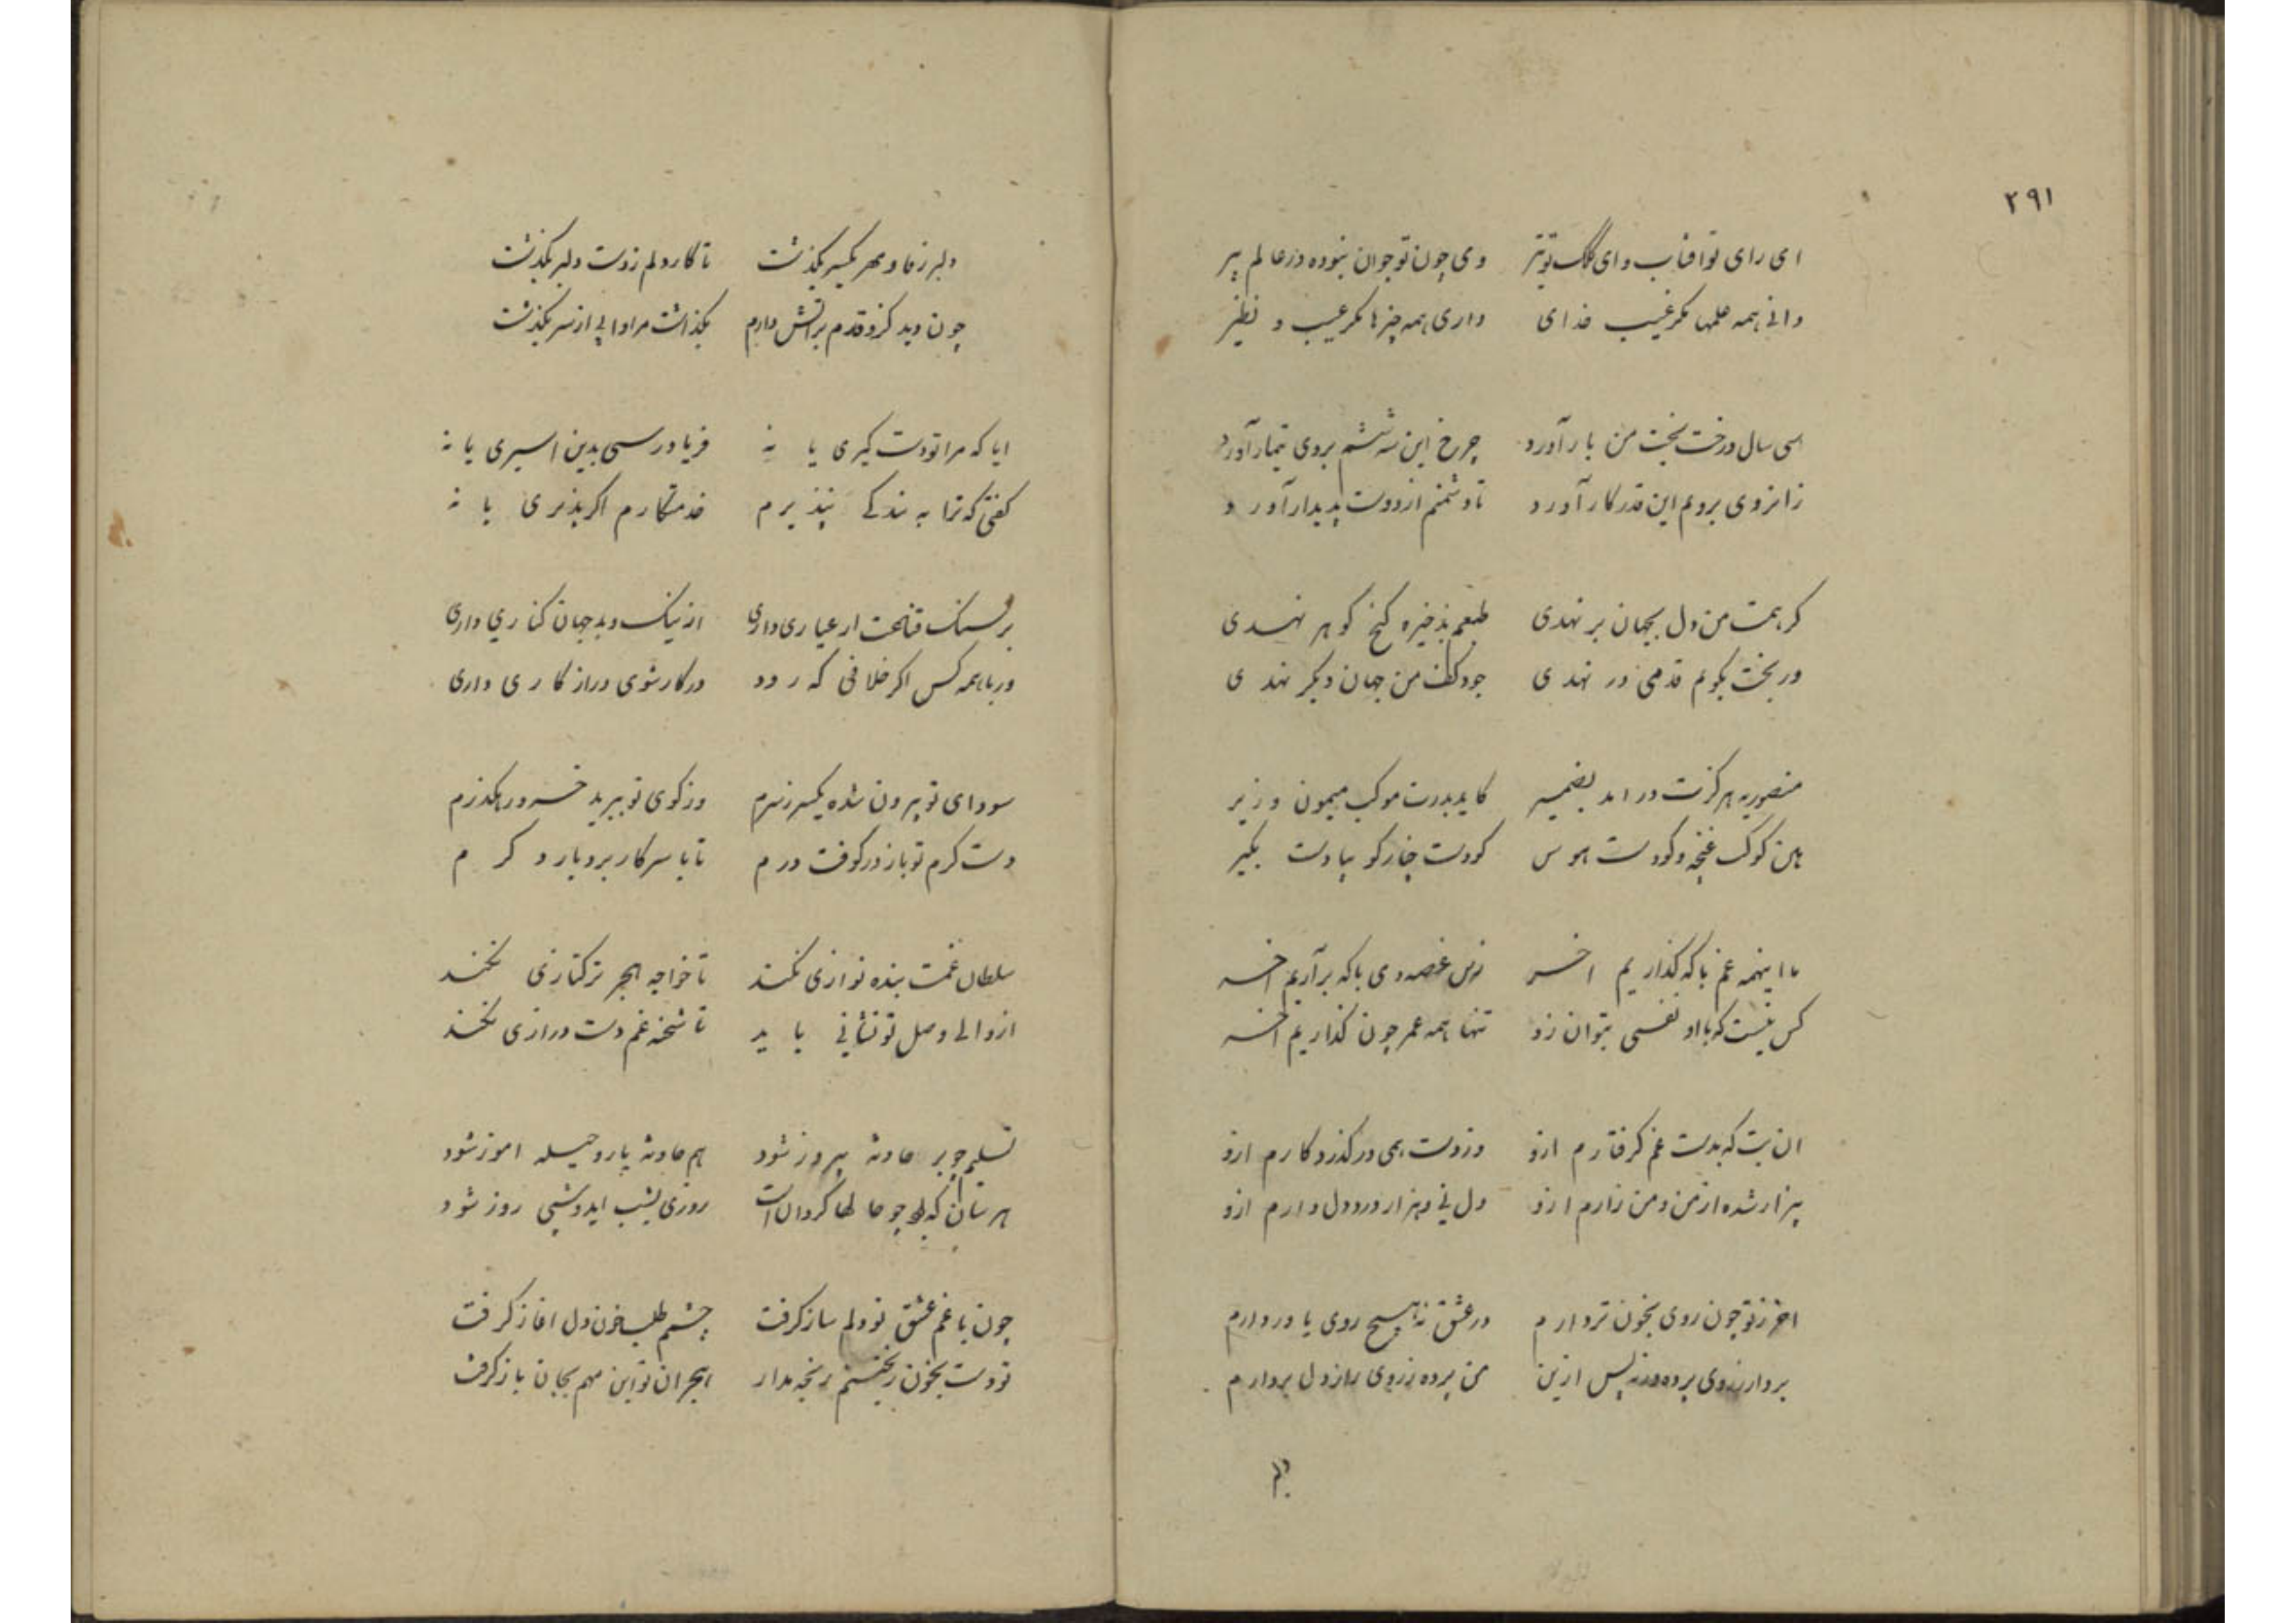 ۲۹۱
ای رای تو افتاب و ای کلک تو تیر وی چون تو جوان نبوده در عالم پیر
دانی همه علمها مکر غیب خدای داری همه چیزها مکر عیب و نظیر
سی سال درخت بخت من بار آورد چرخ این سه ششم بروی تیمار آورد
زانروی برویم این قدر کار آورد تا دشمنم از دوست پدیدار آورد
کر همت من دل بجهان بر نهدی طبعم بذخیره کنج کوهر نهدی
ور بخت بکویم قدمی در نهدی جود کف من جهان دیکر نهدی
منصوریه هرکزت در امد بضمیر کاید بدرت موکب میمون وزیر
هین کوک غنچه و کو دست هوس کو دست چنار کو بیا دست بکیر
با اینهمه غم با که کذاریم اخر زین غصه دمی با که برآریم اخر
کس نیست که با او نفسی بتوان زد تنها همه عمر چون کذاریم اخر
ان بت که بدست غم کرفتارم ازو وز دست همی در کذرد کارم ازو
بیزار شده از من و من زارم ازو دل نی و هزار درد دل دارم ازو
اخر ز تو چون روی بخون تر دارم در عشق نه هیچ روی یاور دارم
بردار ز روی پرده ورنه پس ازین من پرده ز روی راز دل بردارم
دلبر ز وفا و مهر یکسر بکذشت تا کار دلم ز دست دلبر بکذشت
چون دید کزو قدم براتش دارم بکذاشت مرا و ابی از سر بکذشت
ایا که مرا تو دست کیری یا نه فریاد رسی بدین اسیری یا نه
کفتی که ترا به بندکی بپذیرم خدمتکارم اکر پذیری یا نه
بر سنک قناعت ار عیاری داری از نیک و بد جهان کناری داری
ور با همه کس اکر خلافی که رود در کار شوی دراز کاری داری
سودای تو بیرون شده یکسر ز سرم وز کوی تو ببرید خرد رهکذرم
دست کرم تو باز در کوفت درم تا با سر کار برد بار دکرم
سلطان غمت بنده نوازی نکند تا خواجه هجر ترکتازی نکند
از والی وصل تو نشانی باید تا شحنه غم دست درازی نکند
تسلیم چو بر حادثه پیروز شود هم حادثه یار و حیله اموز شود
روزی بشب اید و شبی روز شود
چون با غم عشق تو دلم ساز کرفت چشم طلب خون دل اغاز کرفت
تو دست بخون ریختنم رنجه مدار هجران تو این مهم بجان باز کرفت